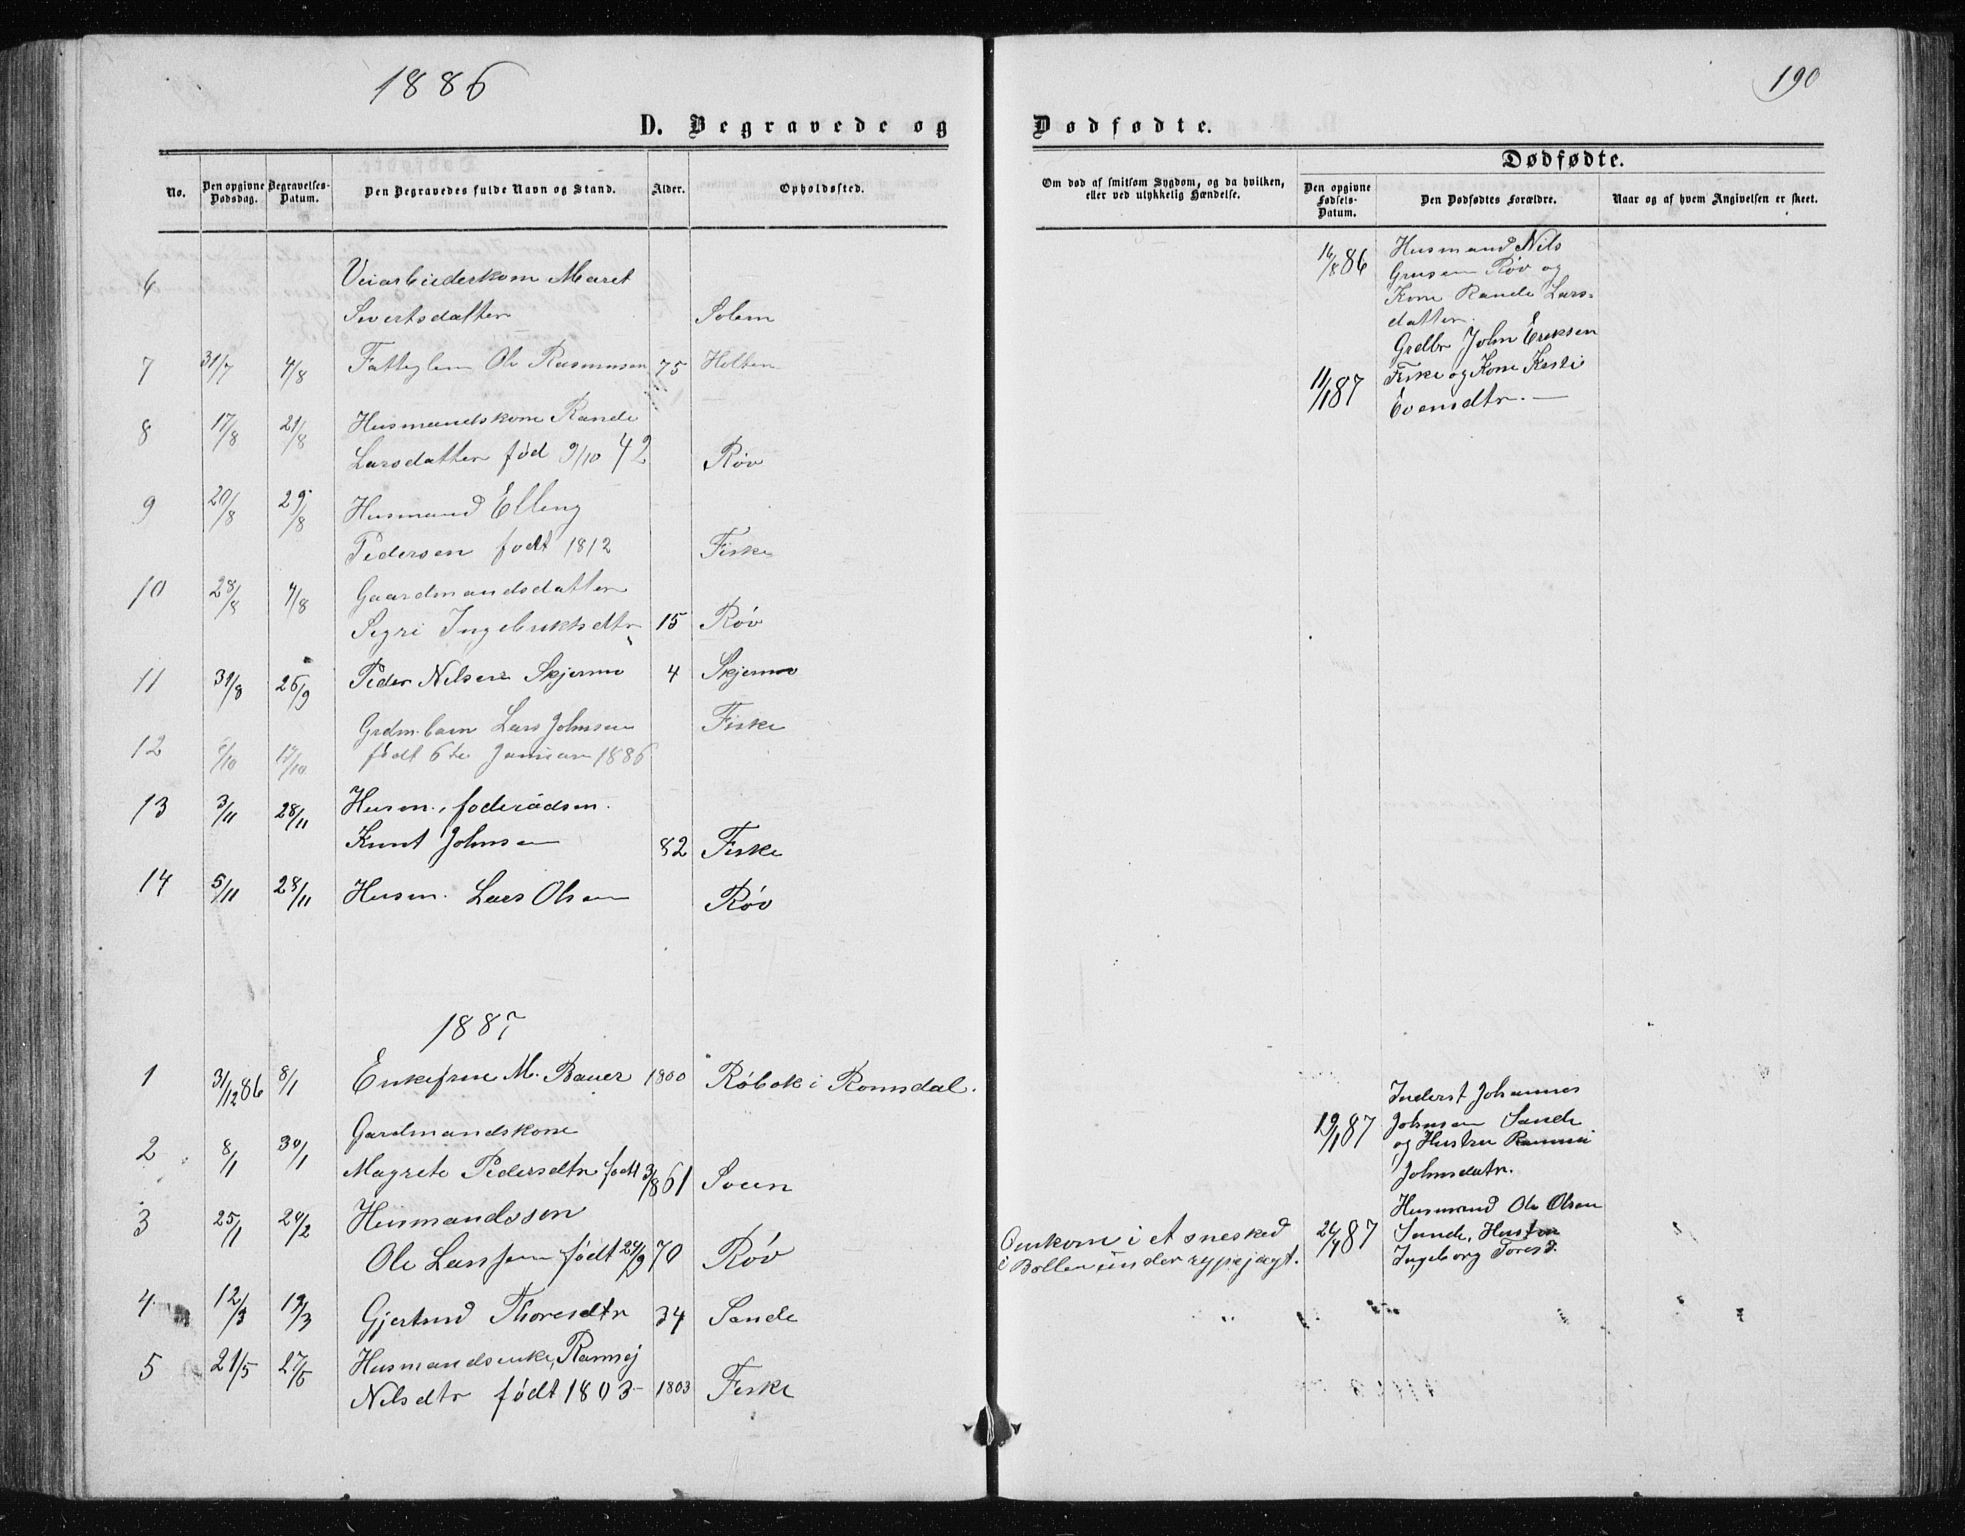 1886
190
D. Begravede og Dødfødte.
No.
Den opgivne Dødsdag.
Begravelses-Datum.
Den Begravedes fulde Navn og Stand.
Alder.
Opholdssted.
Om død af smitsom Sygdom, og da hvilken, eller ved ulykkelig Hændelse.
Dødfødte.
Den opgivne Fødsels-Datum.
Den Dødfødtes Forældre.
Naar og af hvem Angivelsen er skeet.
6 Veiarbeiderkone Maret
Sivertsdatter Solem
7 31/7 4/8 Ole Rasmusen 75 Holten
8 17/8 21/8 Husmandskone Rande
Larsdatter fød 9/10 42 Røv
9 20/8 29/8 Husmand Elling
Pedersen født 1812 Fiske
10 28/8 4/8 Gaardmandsdatter
Sigri Ingebriktsdtr 15 Røv
11 31/8 26/9 Peder Nilsen Skjermo 4 Skjermo
12 Grdm. barn Lars Johnsen Fiske
/10 17/10 født 6te Januar 1886
13 3/11 28/11 Husm., foderådsm.
Knut Johnsen 82 Fiske
14 5/11 28/11 Husm. Lars Olsen Røv
1887
1 31/12 86 8/1 Enkefrue M. Bauer 1800 Røbek i Romsdal.
2 8/1 30/1 Gardmandskone
Magrete Pedersdtr født 3/8 61 Soen
3 25/1 20/2 Husmandssøn
Ole Larssen født 24/9 70 Røv
Omkom i et snesked
i Bollen under rypejagt.
4 12/3 19/3 Gjertrud Thoresdtr 34 Sande
5 21/5 27/5 Husmandsenke, Rannej
Nilsdtr født 1803 1803 Fiske
16/8 86 Husmand Nils
Røv og
Kone Rande Lars-
datter.
Grdbr John Eriksen
11/1 87 Fiske og Kone Kesti
Evensdtr.
Inderst Johannes
19/1 87 Johnsen Sande
og Hustru Rannei
Johnsdatr.
Husmand Ole Olsen
26/4 87 Sande, Hustru
Ingeborg Toresd.